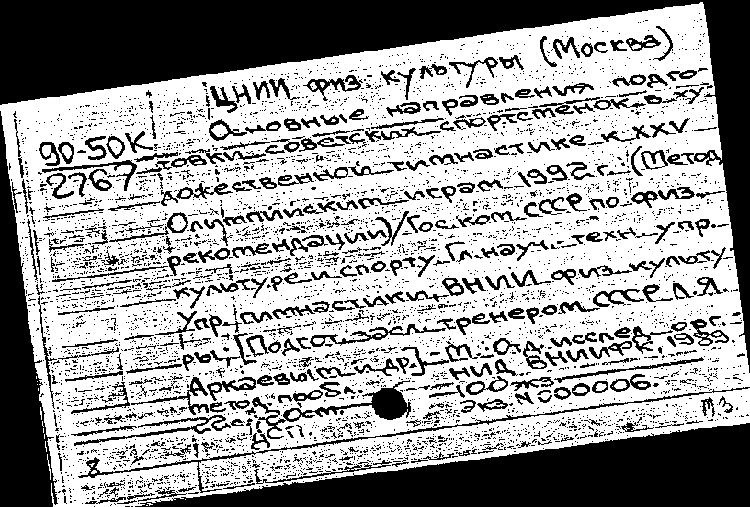 ЦНИИ физ. культуры (Москва)
90-50К
2767
Основные направления подго-
товки советских спортсменок в ху-
дожественной гимнастике к XXV
Олимпийским играм 1992 г. (Метод.
рекомендации) / Гос. ком. СССР по физ.
культуре и спорту. Гл. науч.-техн. упр.
Упр. гимнастики, ВНИИ физ. культу-
ры; [Подгот. засл. тренером СССР Л.Я.
Аркаевым и др.] - М.: Отд. исслед. орг.-
метод. пробл. НИД ВНИИФК, 1989.
22 с.; 20 см. 100 экз.
экз. N 000006.
ДСП.
8